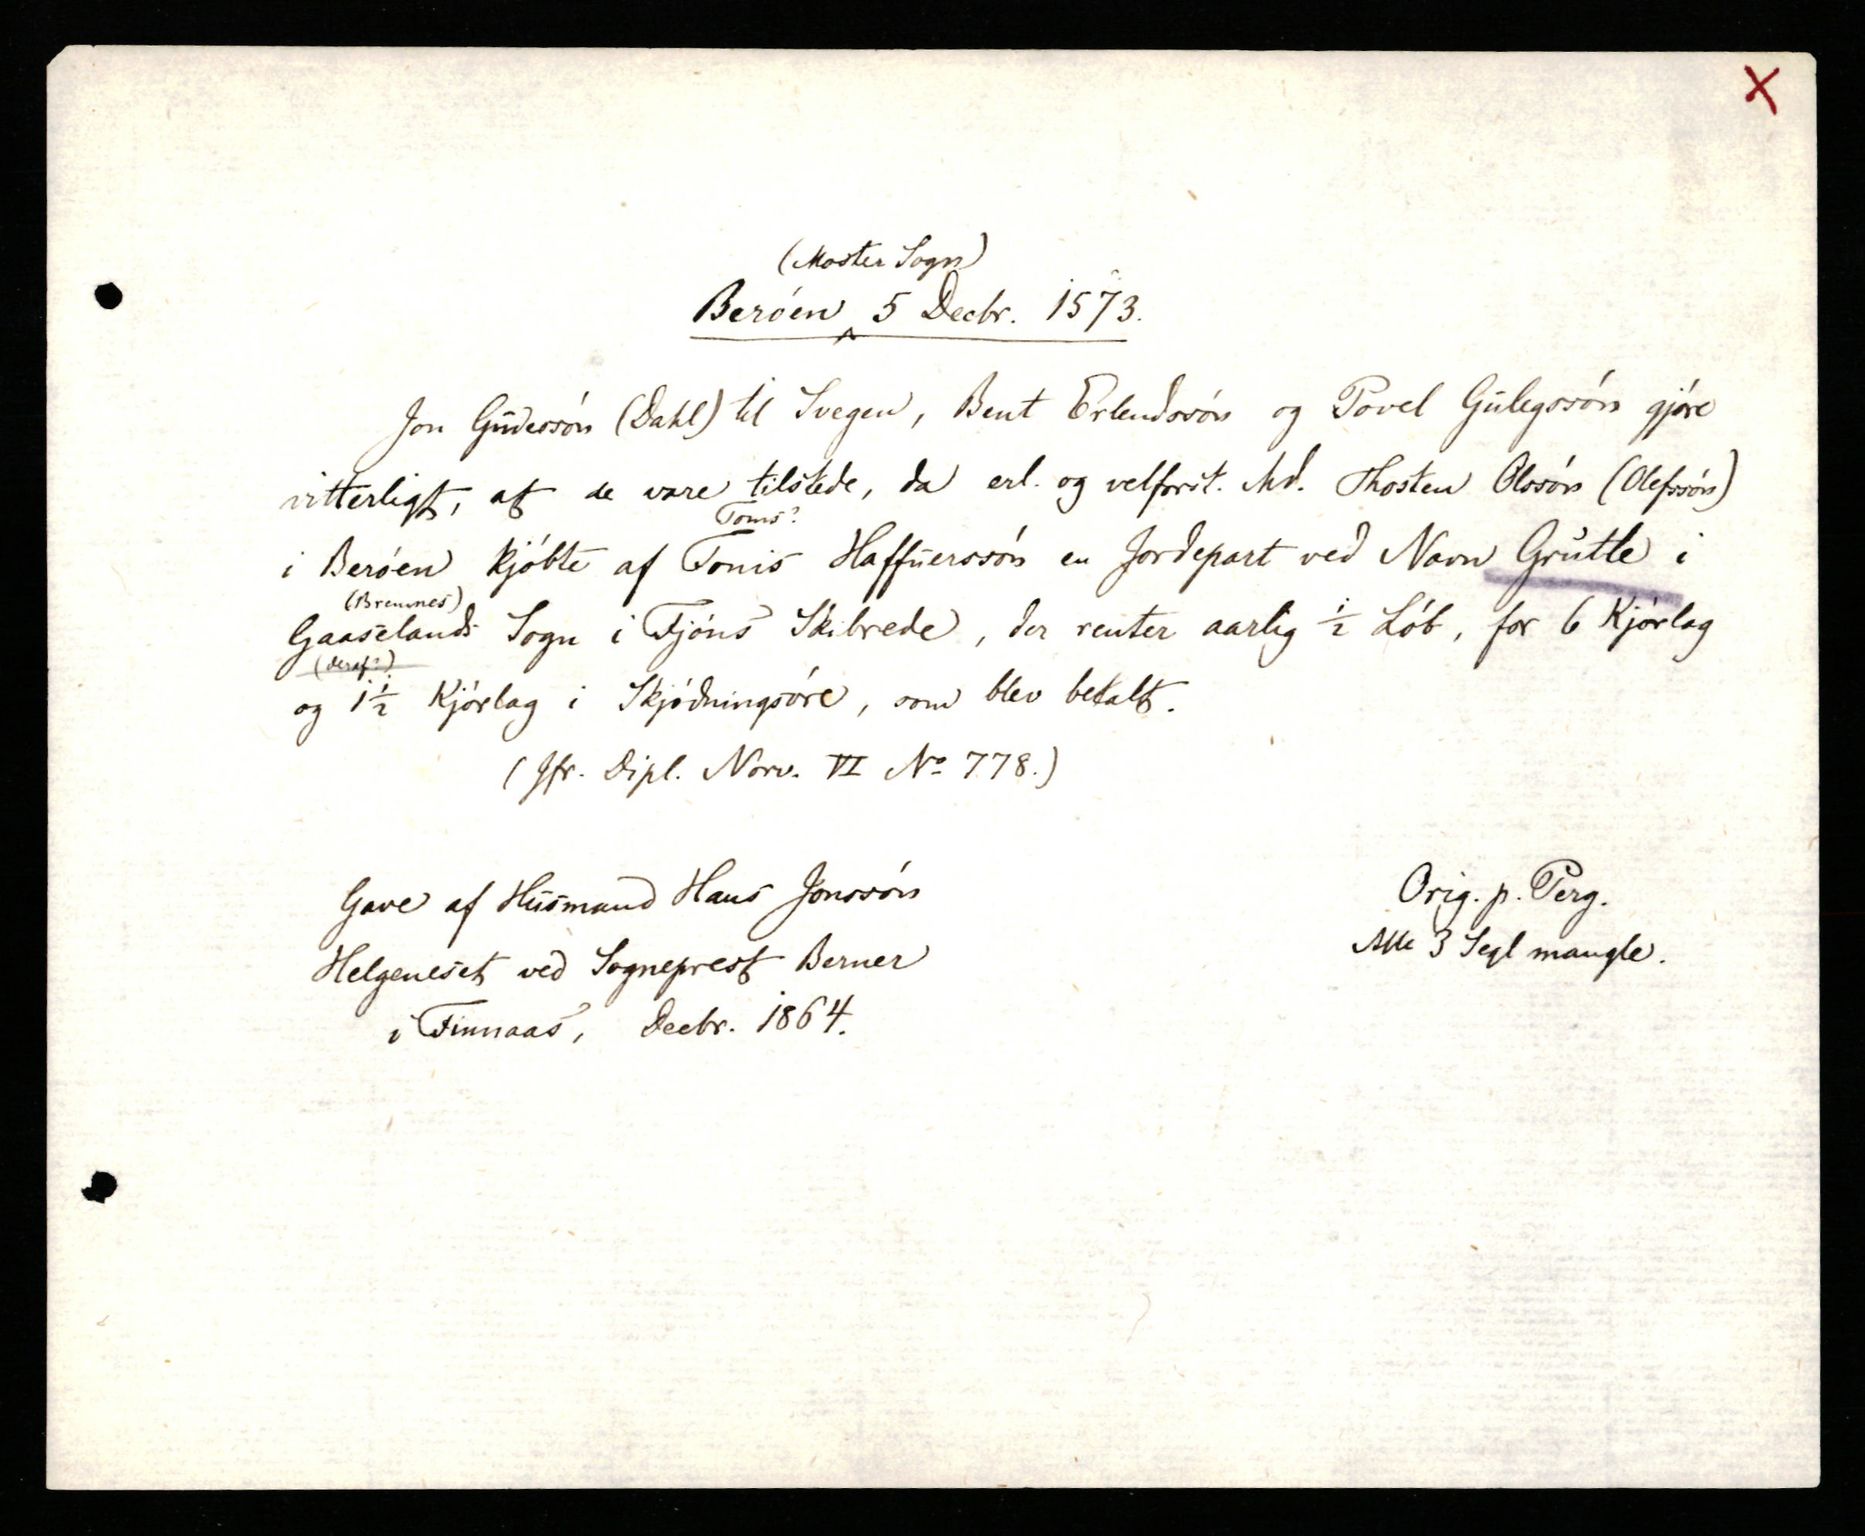 X
(Moster Sogn)
Berøen 5 Decbr. 1573.
Jon Gudessøn (Dahl) til Svegen, Bent Erlendssøn og Povel Gulegssøn gjøre
vitterligt, at de vare tilstede, da erl. og velforst. Md. Thosten Olssøn (Olefssøn)
Toms?
i Berøen kjøbte af Tonis Haffuerssøn en Jordepart ved Navn Grutle i
(Bremnes)
Gaaselands Sogn i Fjøns Skibrede, der renter aarlig ½ Løb, for 6 Kjørlag
(deraf?)
og 1½ Kjørlag i Skjødningsøre, som blev betalt.
(Jfr. Dipl. Norv. VI No 778.)
Gave af Husmand Hans Jonssøn
Helgeneset ved Sogneprest Berner
i Finnaas, Decbr. 1864.
Orig. p. Perg.
Alle 3 Segl mangle.